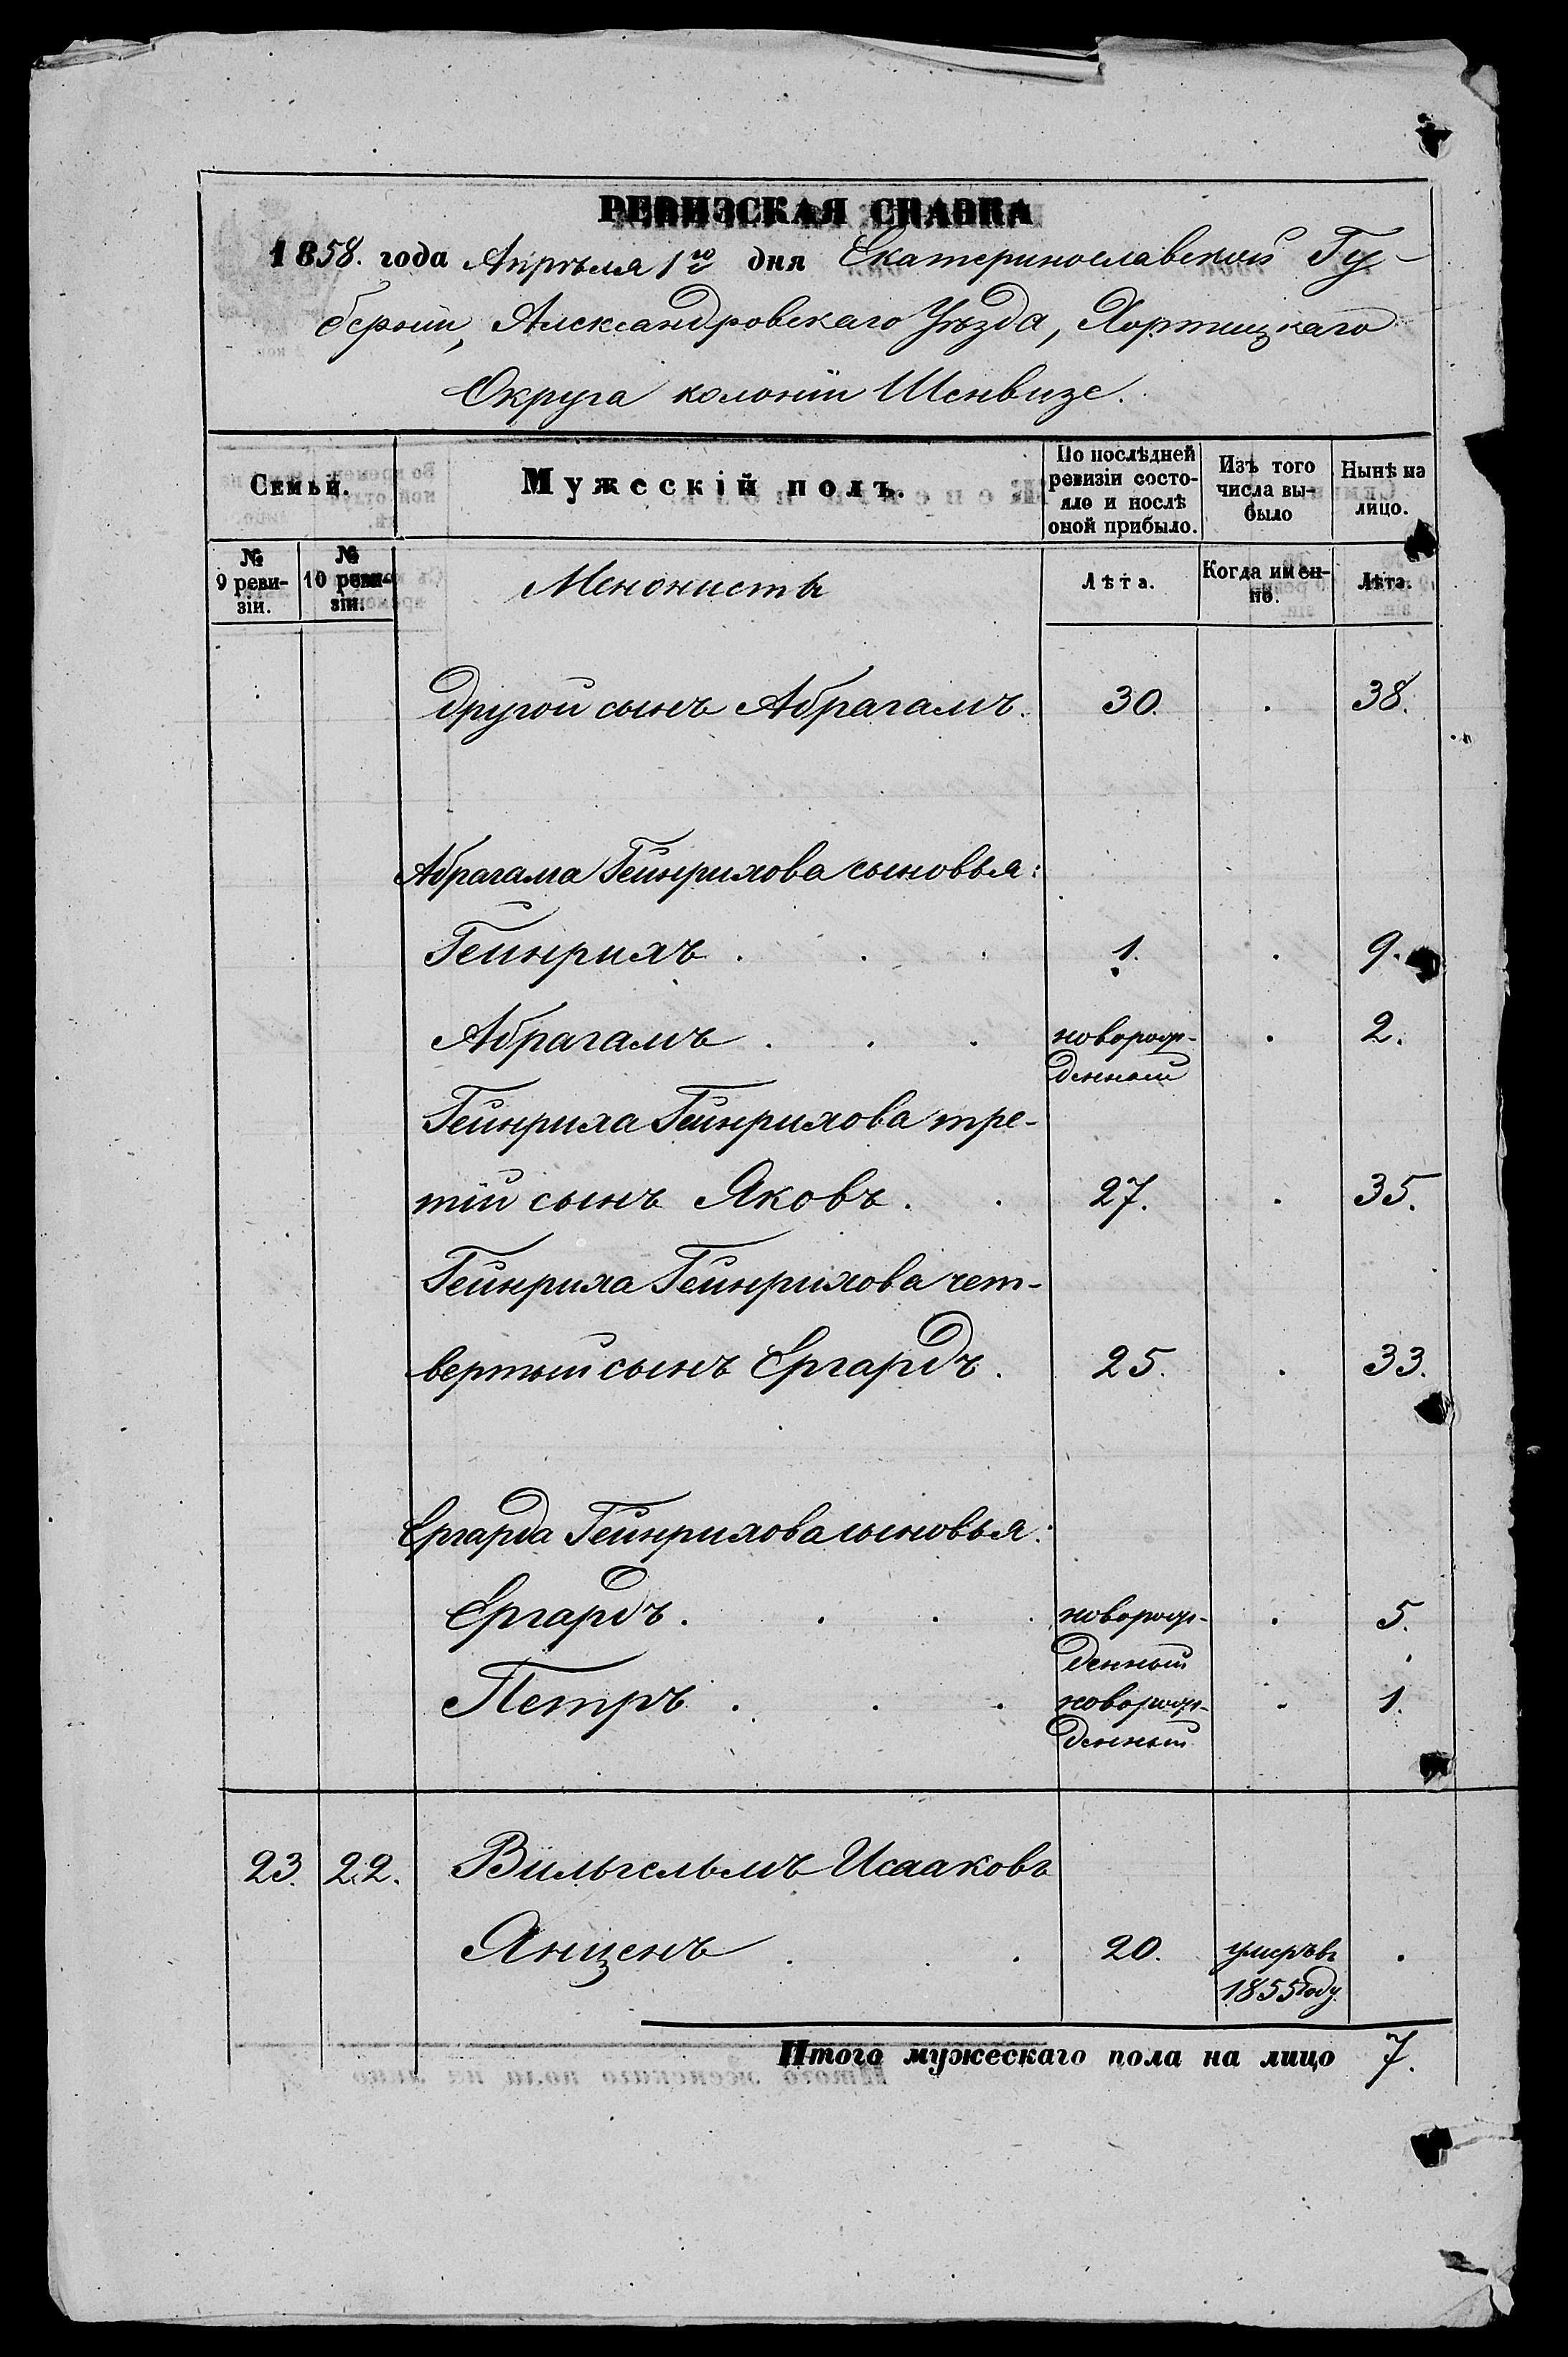 РЕВИЗСКАЯ СКАЗКА
1858. года Апрѣля 1го дня Екатеринославской Гу-
берніи, Александровскаго Уѣзда, Хортицкаго
Округа колоніи Шенвизе.
Семьи. Мужескій полъ. По послѣдней ревизіи состо-яло и послѣ оной прибыло. Изъ того числа вы-было Нынѣ на лицо.
№ 9 реви-зіи. № 10 реви-зіи. Менонисты Лѣта. Когда имен-но. Лѣта.
другой сынъ Абрагамъ. 30. 38.
Абрагама Гейнрихова сыновья:
Гейнрихъ . . . 1. 9.
Абрагамъ . . . новорож- 2.
денный
Гейнриха Гейнрихова тре-
тій сынъ Яковъ . . 27. 35.
Гейнриха Гейнрихова чет-
вертый сынъ Ергардъ. 25. 33.
Ергарда Гейнрихова сыновья:
Ергардъ . . . . новорож- 5.
денный
Петръ . . . новорож- 1.
денный
23. 22. Вильгельмъ Исааковъ
Янценъ . . . 20. умеръ въ .
1855 году.
Итого мужескаго пола на лицо 7.